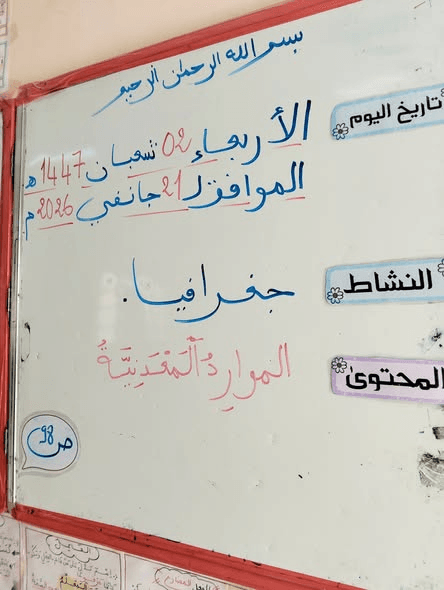 بسم الله الرحمن الرحيم
تاريخ اليوم
الأربعاء 02 شعبان 1447 هـ
الموافق لـ 21 جانفي 2026 م
النشاط
جغرافيا.
المحتوى
الموارِدُ الْمَعْدِنِيَّةُ
ص 98